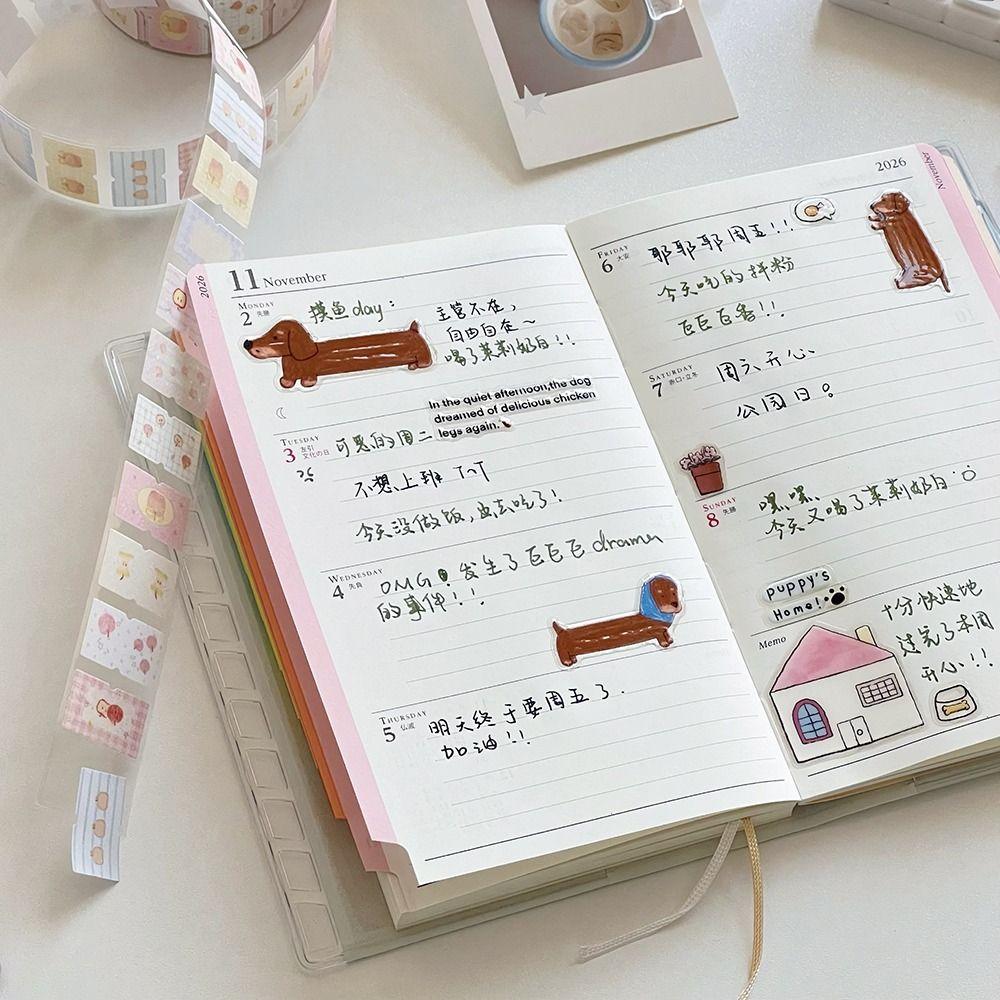 2026
11 November
MONDAY
2 先勝
摸鱼day:
主管不在,
自由自在~
喝了茉莉奶白!!
In the quiet afternoon,the dog
dreamed of delicious chicken
legs again.
TUESDAY
3 友引
文化の日
可恶的周二
不想上班 TnT
今天没做饭,出去吃了!
WEDNESDAY
4 先負
OMG!发生了巨巨巨drama
的事件!!
THURSDAY
5 仏滅
明天终于要周五了.
加油!!
2026
November
FRIDAY
6 大安
耶耶耶周五!!
今天吃的拌粉
巨巨巨香!!
SATURDAY
7 赤口·立冬
周六开心、
公园日。
SUNDAY
8 先勝
嘿嘿、
今天又喝了茉莉奶白
puppy's
Home!
Memo
十分快速地
过完了本周
开心!!